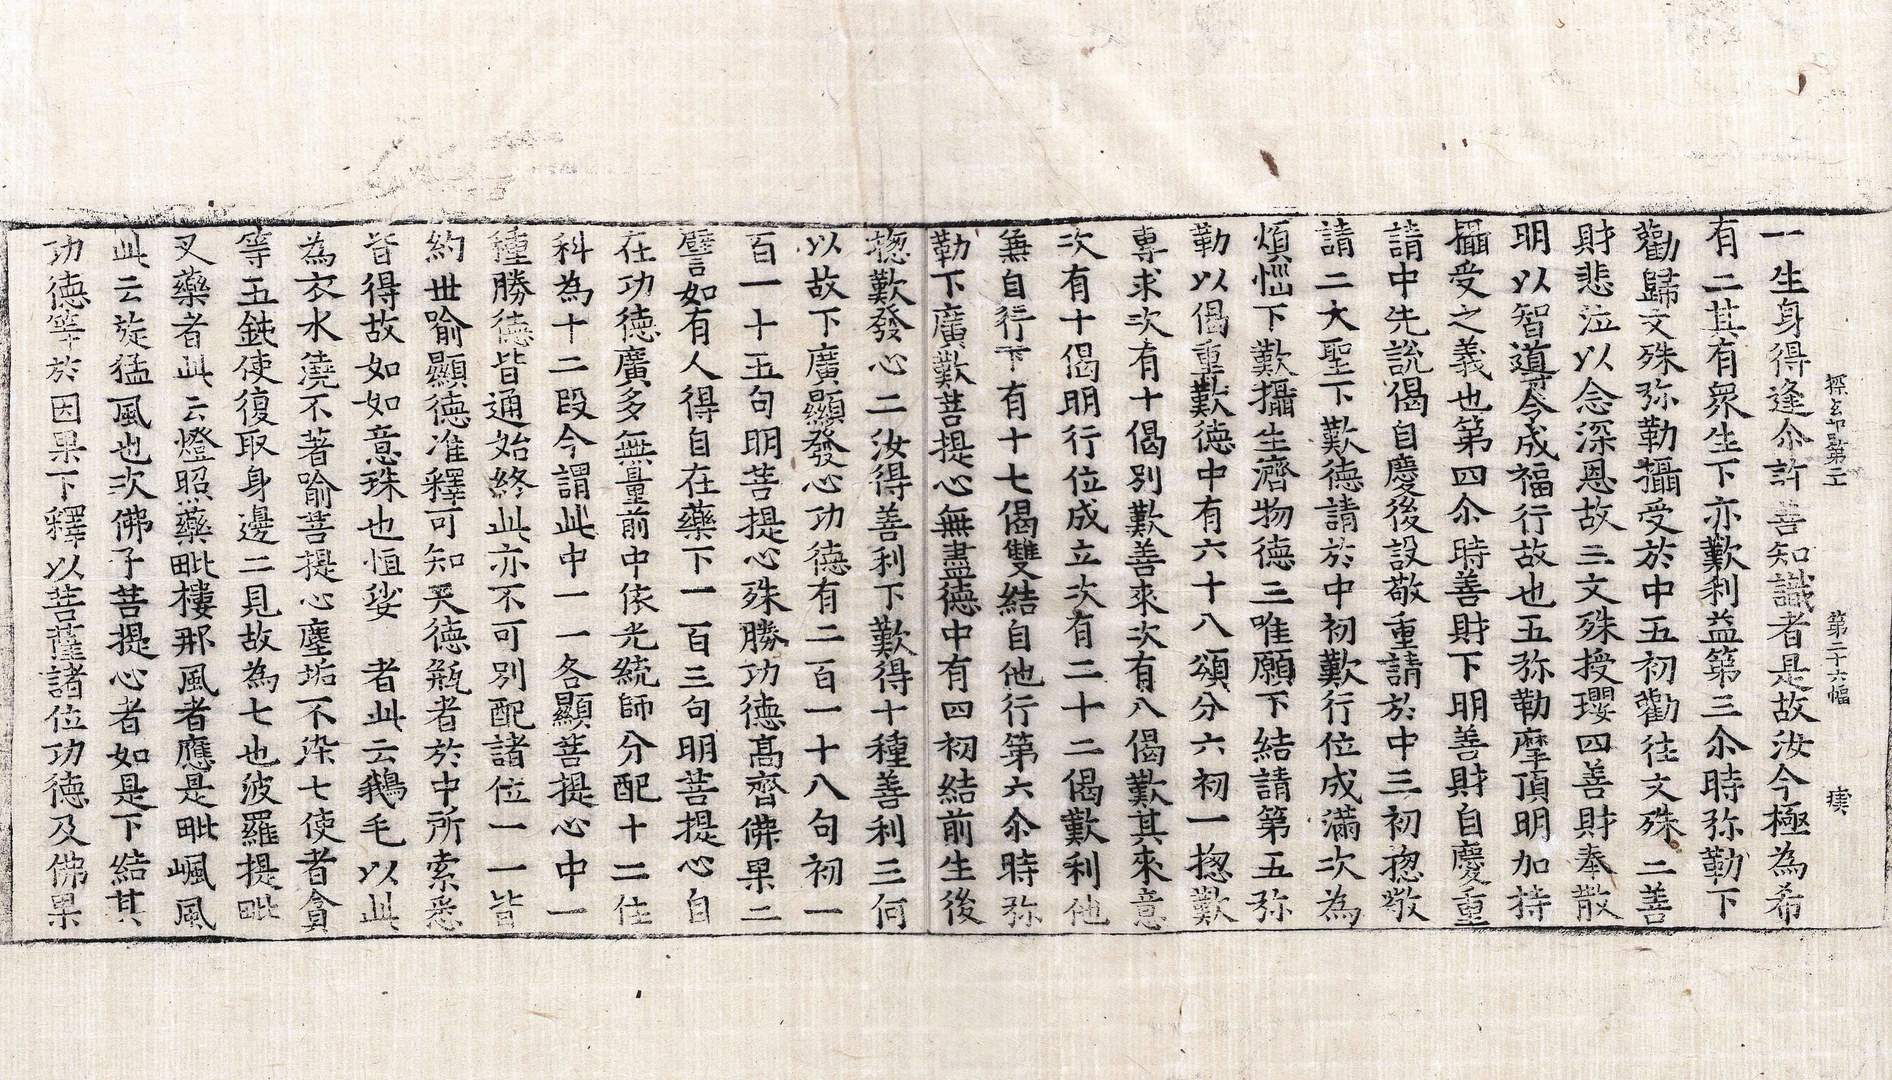 探玄記第二 第二十六幅 㻶
一生身得逢尒許善知識者是故汝今極為希
有二其有衆生下亦歎利益第三尒時弥勒下
勸歸文殊弥勒攝受於中五初勸往文殊二善
財悲泣以念深恩故三文殊授瓔四善財奉散
明以智導令成福行故也五弥勒摩頂明加持
攝受之義也第四尒時善財下明善財自慶重
請中先說偈自慶後設敬重請於中三初揔敬
請二大聖下歎德請於中初歎行位成滿次為
煩惱下歎攝生濟物德三唯願下結請第五弥
勒以偈重歎德中有六十八頌分六初一揔歎
專求次有十偈別歎善來次有八偈歎其來意
次有十偈明行位成立次有二十二偈歎利他
無自行下有十七偈雙結自他行第六尒時弥
勒下廣歎菩提心無盡德中有四初結前生後
揔歎發心二汝得善利下歎得十種善利三何
以故下廣顯發心功德有二百一十八句初一
百一十五句明菩提心殊勝功德高齊佛果二
譬如有人得自在藥下一百三句明菩提心自
在功德廣多無量前中依光統師分配十二住
科為十二段今謂此中一一各顯菩提心中一
種勝德皆通始終此亦不可別配諸位一一皆
約世喻顯德准釋可知天德瓶者於中所索悉
皆得故如如意珠也恒娑 者此云鵝毛以此
為衣水澆不著喻菩提心塵垢不染七使者貪
等五鈍使復取身邊二見故為七也波羅提毗
叉藥者此云燈照藥毗樓那風者應是毗嵐風
此云旋猛風也次佛子菩提心者如是下結其
功德等於因果下釋以菩薩諸位功德及佛果